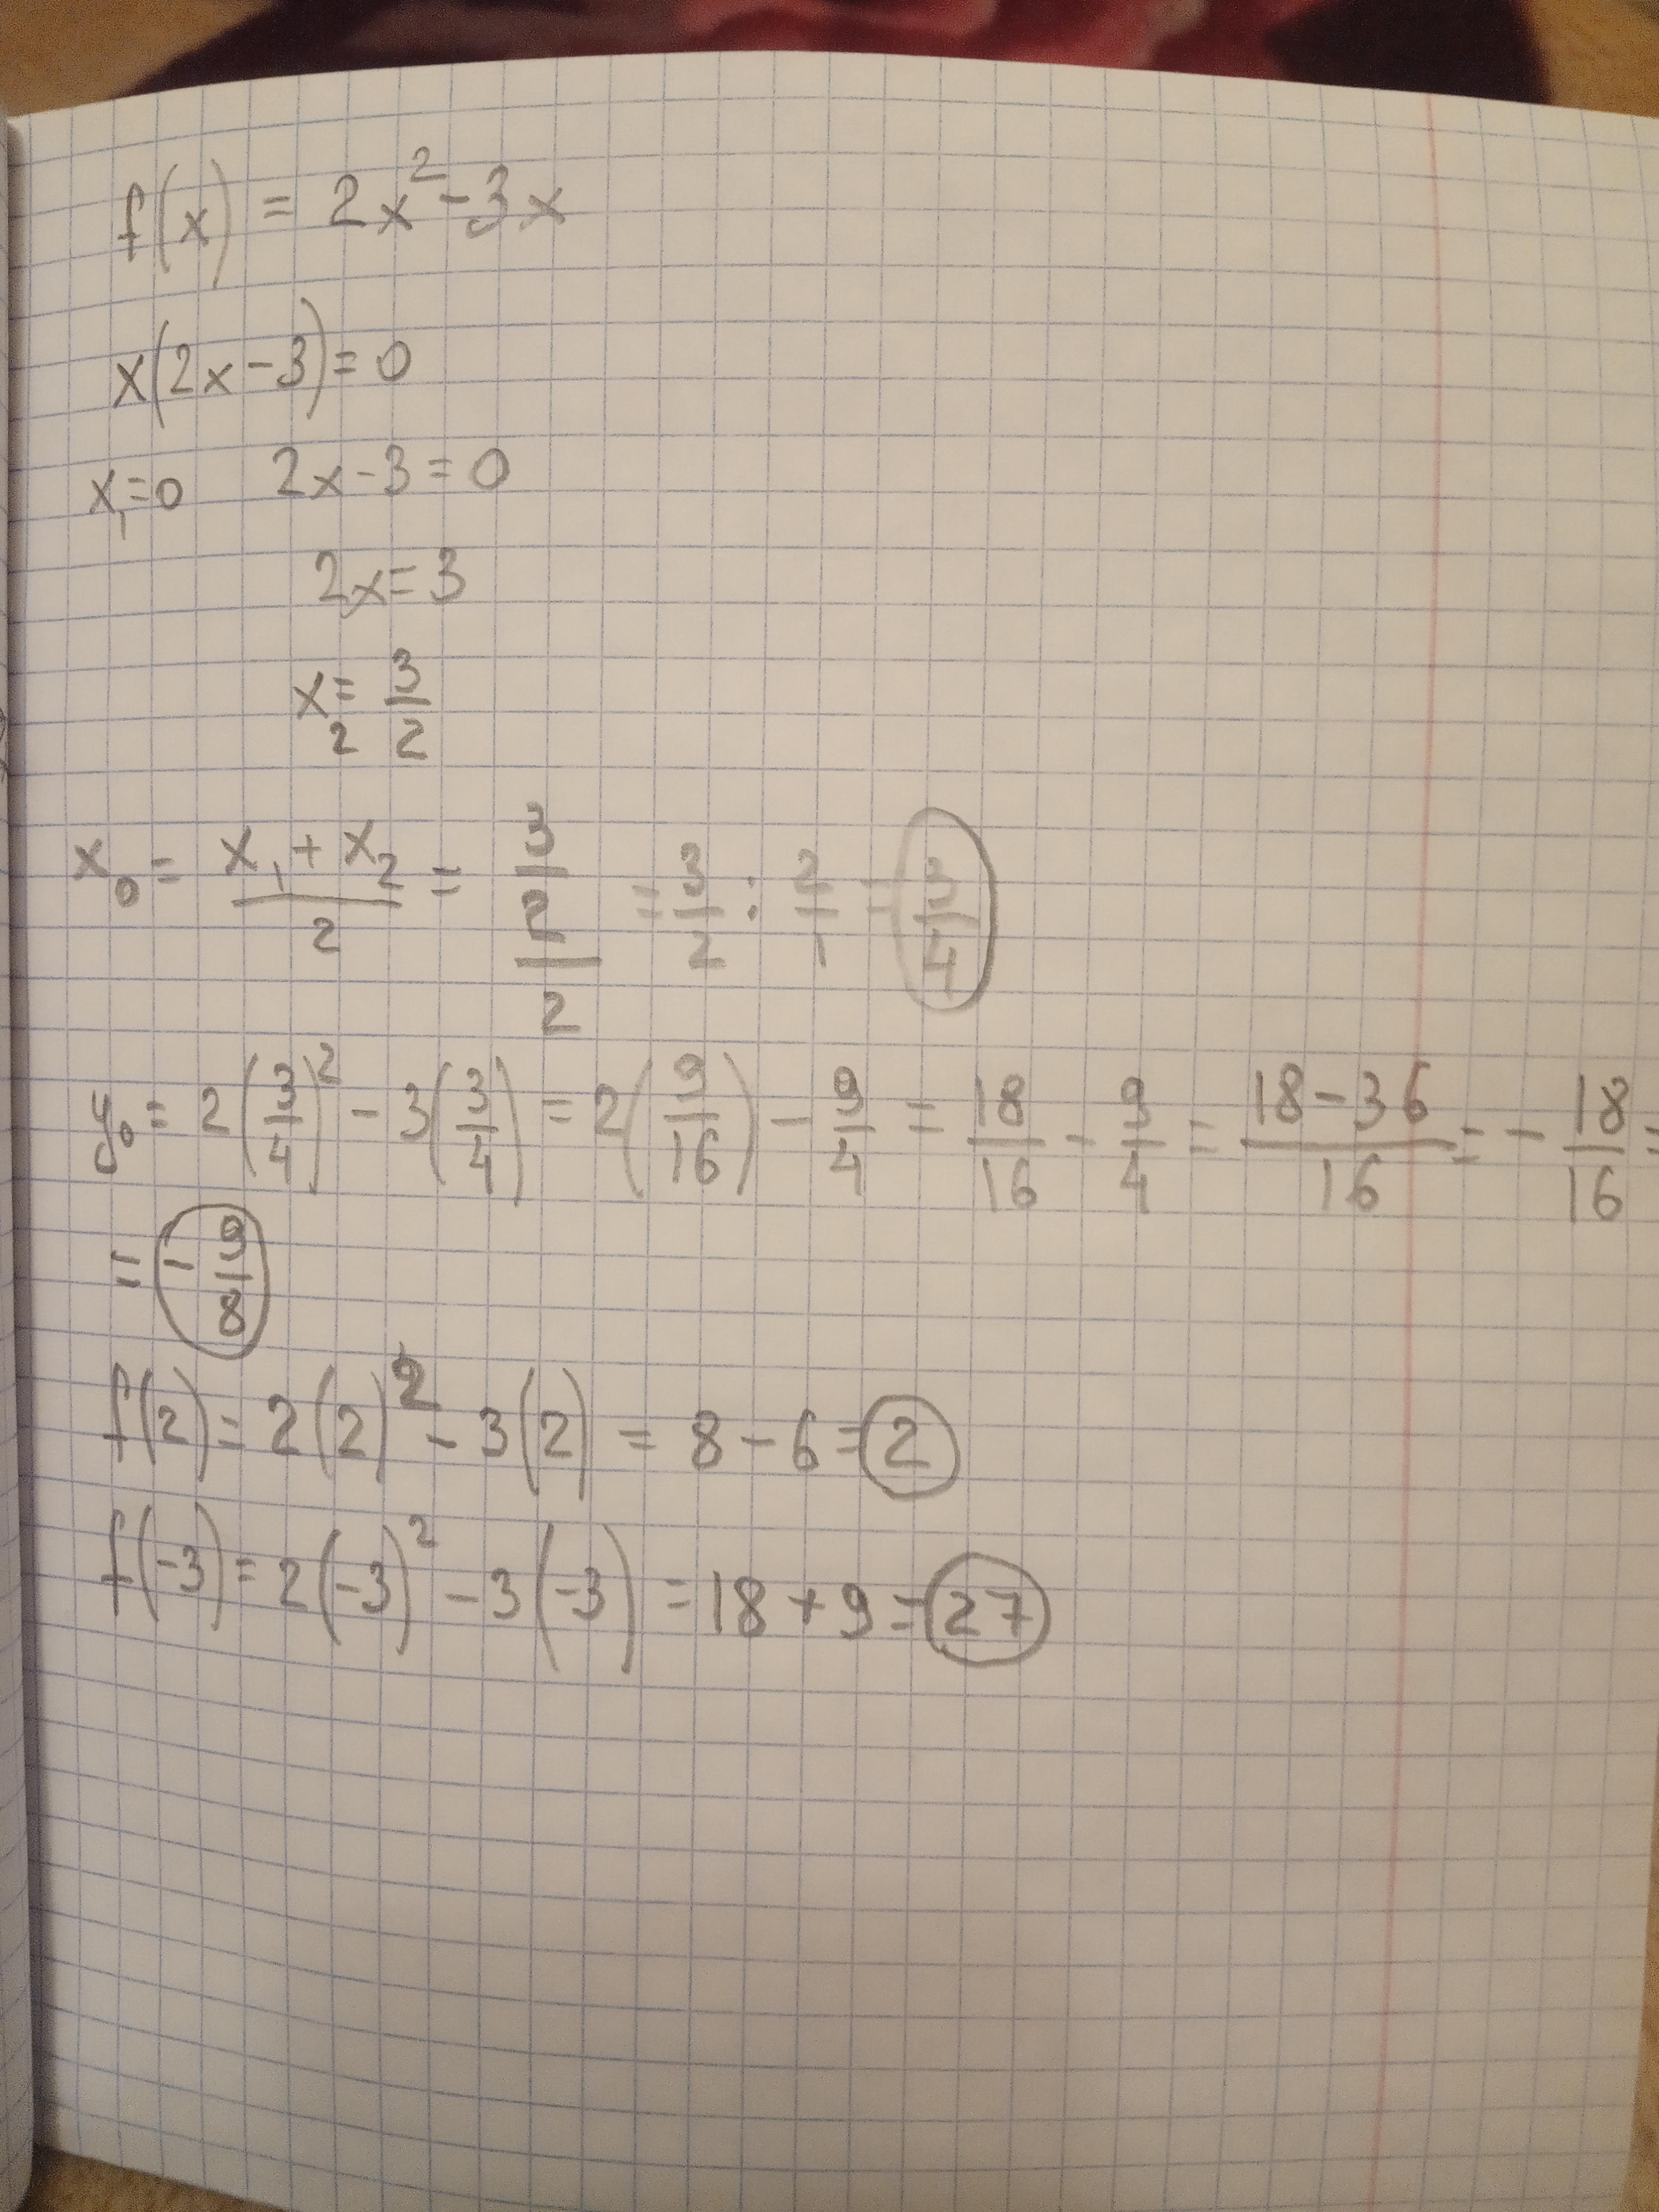 f(x) = 2x² - 3x
x(2x - 3) = 0
x₁ = 0 2x - 3 = 0
2x = 3
x₂ = 3/2
x₀ = (x₁ + x₂)/2 = (3/2)/2 = 3/2 : 2/1 = 3/4
y₀ = 2(3/4)² - 3(3/4) = 2(9/16) - 9/4 = 18/16 - 9/4 = (18 - 36)/16 = - 18/16 =
= - 9/8
f(2) = 2(2)² - 3(2) = 8 - 6 = 2
f(-3) = 2(-3)² - 3(-3) = 18 + 9 = 27